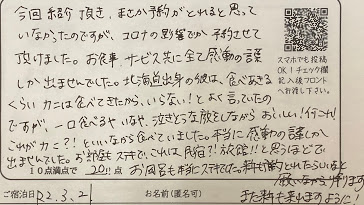 今回紹介頂き、まさか予約がとれると思って
いなかったのですが、コロナの影響でか予約させて
頂けました。お食事、サービス共に全て感動の言葉
しか出ませんでした。北海道出身の彼は、食べあきる
くらいカニは食べてきたから、いらない!とよく言っていたの
ですが、一口食べるやいなや、泣きそうな顔をしながらおいしい!!何これ!
これがカニ?!といいながら食べていました。本当に感動の言葉しか
出ませんでした。お部屋もステキで、これは民宿?!旅館!!と思うほどで
10点満点で 20!!点 お風呂も本当にステキでした。
願いながら帰ります
また来れますように!
スマホでも投稿
OK!チェック欄
記入後フロント
へお渡し下さい。
ご宿泊日 R2.3.21 お名前(匿名可)